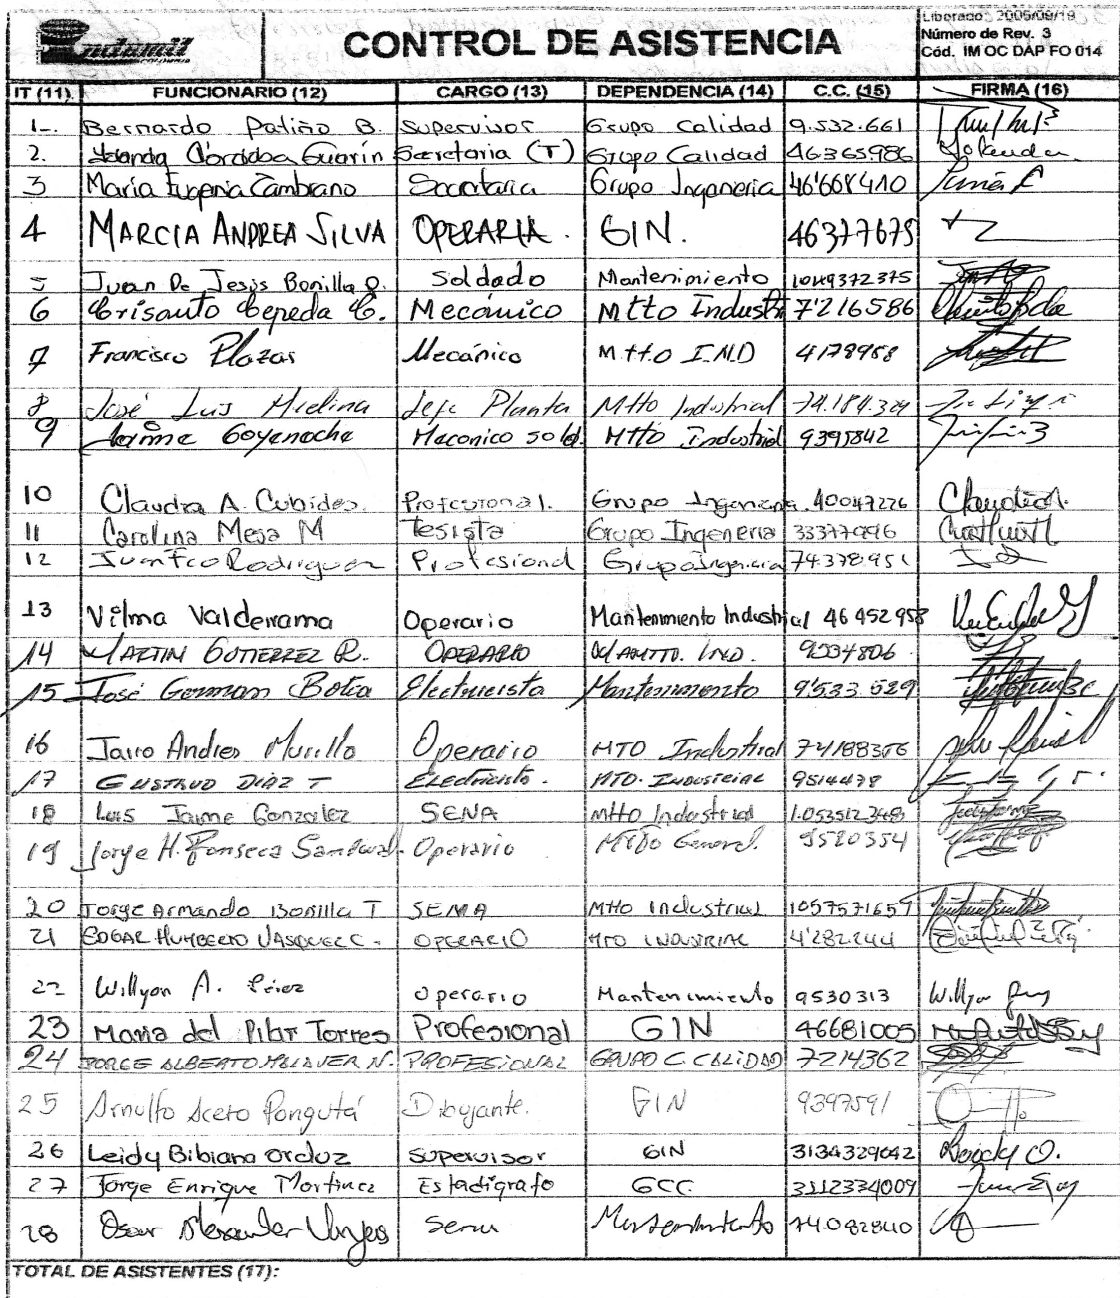 Indumil
CONTROL DE ASISTENCIA
Liberado: 2005/09/19
Número de Rev. 3
Cód. IM OC DAP FO 014
IT (11) FUNCIONARIO (12) CARGO (13) DEPENDENCIA (14) C.C. (15) FIRMA (16)
1-. Bernardo Patiño B. Supervisor Grupo Calidad 9.532.661
2. Yolanda Córdoba Guarín Secretaria (T) Grupo Calidad 46365986 Yolanda
3 María Eugenia Zambrano Secretaria Grupo Ingenieria 46'668410
4 MARCIA ANDREA SILVA OPERARIA. GIN. 46377679
5 Juan De Jesús Bonilla Soldado Mantenimiento 1049372375
6 Crisanto Cepeda C. Mecánico Mtto Industri 7'216586
7 Francisco Plazas Mecánico Mtto I.N.D 4178958
8 José Luis Medina Jefe Planta Mtto Industrial 74.184.329
9 Jaime Goyeneche Mecanico sold. Mtto Industrial 9395842
10 Claudia A. Cubides Profesional. Grupo Ingenieria 40047226
11 Carolina Mesa M Tesista Grupo Ingenieria 33377096
12 Juan Fco Rodriguez Profesional Grupo Ingenieria 74.378.951
13 Vilma Valderrama Operario Mantenimiento Industrial 46 452 958
14 MARTIN GUTIERREZ R. OPERARIO MAMTTO. IND. 9534806
15 José German Botia Electricista Mantenimiento 9'533 529
16 Jairo Andres Murillo Operario MTO Industrial 74188356
17 GUSTAVO DIAZ T Electricista. MTO. INDUSTRIAL 9514478
18 Luis Jaime Gonzalez SENA Mtto Industrial 1.053512348
19 Jorge H. Fonseca Sandoval Operario Mtto General. 9520354
20 Jorge Armando Bonilla T SENA Mtto Industrial 1057571659
21 EDGAR HUMBERTO VASQUEZ C. OPERARIO MTO INDUSTRIAL 4'282244
22 Willyan A. Pérez Operario Mantenimiento 9530313
23 Maria del Pilar Torres Profesional GIN 46681005
24 JORGE ALBERTO MALAVER N. PROFESIONAL GRUPO C CALIDAD 7214362
25 Arnulfo Acero Pongutá Dibujante. GIN 9397591
26 Leidy Bibiana Orduz Supervisor GIN 3134329042 Leidy O.
27 Jorge Enrique Martinez Estadígrafo GCC 3112334009
28 Oscar Alexander Vargas Sena Mantenimiento 74082840
TOTAL DE ASISTENTES (17):